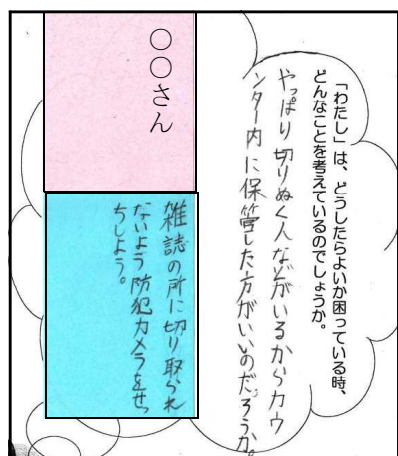 「わたし」は、どうしたらよいか困っている時、
どんなことを考えているのでしょうか。
やっぱり切りぬく人などがいるからカウ
ンター内に保管した方がいいのだろうか。
〇〇さん
雑誌の所に切り取られ
ないよう防犯カメラをせっ
ちしよう。